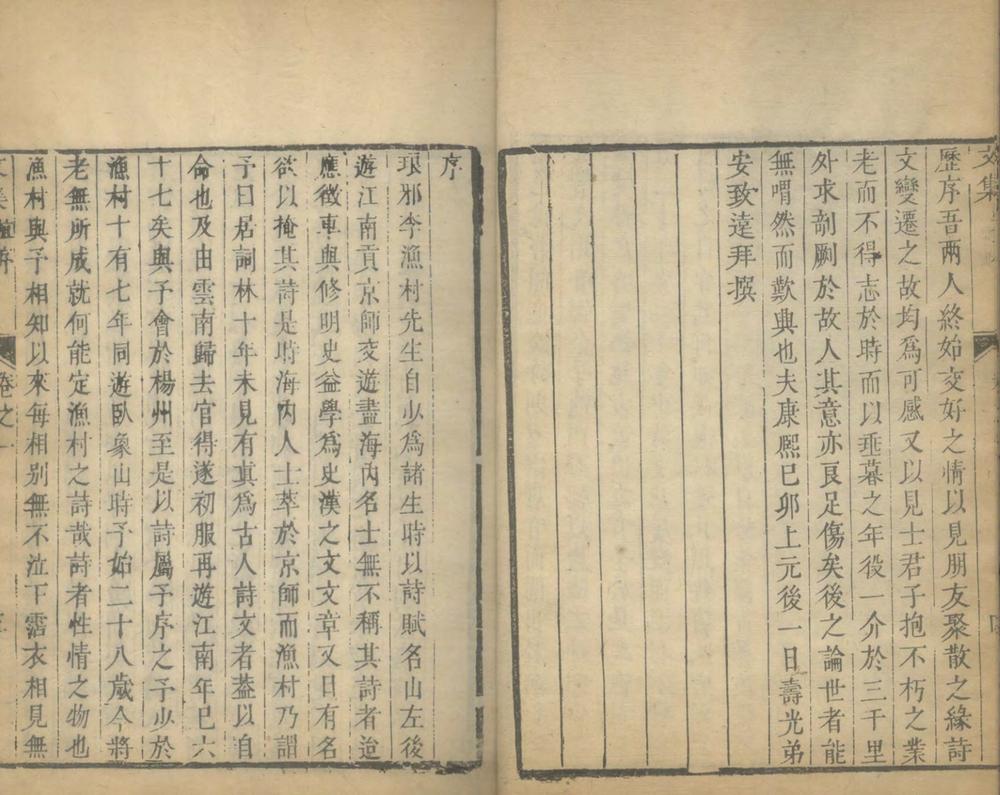 文集
歷序吾兩人終始交好之情以見朋友聚散之緣詩
文變遷之故均爲可感又以見士君子抱不朽之業
老而不得志於時而以垂暮之年役一介於三千里
外求剞劂於故人其意亦良足傷矣後之論世者能
無喟然而歎興也夫康熙己卯上元後一日壽光弟
安致遠拜撰
序
琅邪李漁村先生自少爲諸生時以詩賦名山左後
遊江南貢京師交遊盡海內名士無不稱其詩者迨
應徵車與修明史益學爲史漢之文文章又日有名
欲以掩其詩是時海內人士萃於京師而漁村乃謂
予曰居詞林十年未見有眞爲古人詩文者葢以自
命也及由雲南歸去官得遂初服再遊江南年已六
十七矣與予會於楊州至是以詩屬予序之予少於
漁村十有七年同遊臥象山時予始二十八歲今將
老無所成就何能定漁村之詩哉詩者性情之物也
漁村與予相知以來每相別無不泣下霑衣相見無
卷之一